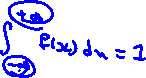 ∫_{-∞}^{+∞} f(x) dx = 1